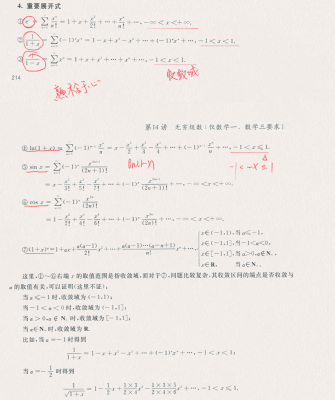 4. 重要展开式
① e^x = ∑ x^n/n! = 1 + x + x²/2! + ⋯ + x^n/n! + ⋯, -∞<x<+∞.
② 1/(1+x) = ∑ (-1)^n x^n = 1 - x + x² - x³ + ⋯ + (-1)^n x^n + ⋯, -1<x<1.
③ 1/(1-x) = ∑ x^n = 1 + x + x² + ⋯ + x^n + ⋯, -1<x<1.
收敛域
214
第14讲 无穷级数(仅数学一、数学三要求)
④ ln(1+x) = ∑ (-1)^(n-1) x^n/n = x - x²/2 + x³/3 - x⁴/4 + ⋯ + (-1)^(n-1) x^n/n + ⋯, -1<x≤1.
⑤ sin x = ∑ (-1)^n x^(2n+1)/(2n+1)!
ln(1-x)
-1<-x≤1
= x - x³/3! + x⁵/5! - x⁷/7! + ⋯ + (-1)^n x^(2n+1)/(2n+1)! + ⋯, -∞<x<+∞.
⑥ cos x = ∑ (-1)^n x^(2n)/(2n)!
= 1 - x²/2! + x⁴/4! - x⁶/6! + ⋯ + (-1)^n x^(2n)/(2n)! + ⋯, -∞<x<+∞.
⑦ (1+x)^a = 1 + ax + a(a-1)/2! x² + ⋯ + a(a-1)⋯(a-n+1)/n! x^n + ⋯,
x∈(-1,1), 当a≤-1,
x∈(-1,1], 当-1<a<0,
x∈[-1,1], 当a>0,a∉N₊,
x∈R, 当a∈N₊.
这里,①~⑥右端x的取值范围是指收敛域,而对于⑦,问题比较复杂,其收敛区间的端点是否收敛与
a的取值有关,可以证明(这里不证):
当a≤-1时,收敛域为(-1,1);
当-1<a<0时,收敛域为(-1,1];
当a>0,a∉N₊时,收敛域为[-1,1];
当a∈N₊时,收敛域为R.
比如,当a=-1时得到
1/(1+x) = 1 - x + x² - x³ + ⋯ + (-1)^n x^n + ⋯, -1<x<1;
当a=-1/2时得到
1/√(1+x) = 1 - 1/2 x + (1×3)/(2×4) x² - (1×3×5)/(2×4×6) x³ + ⋯, -1<x≤1.